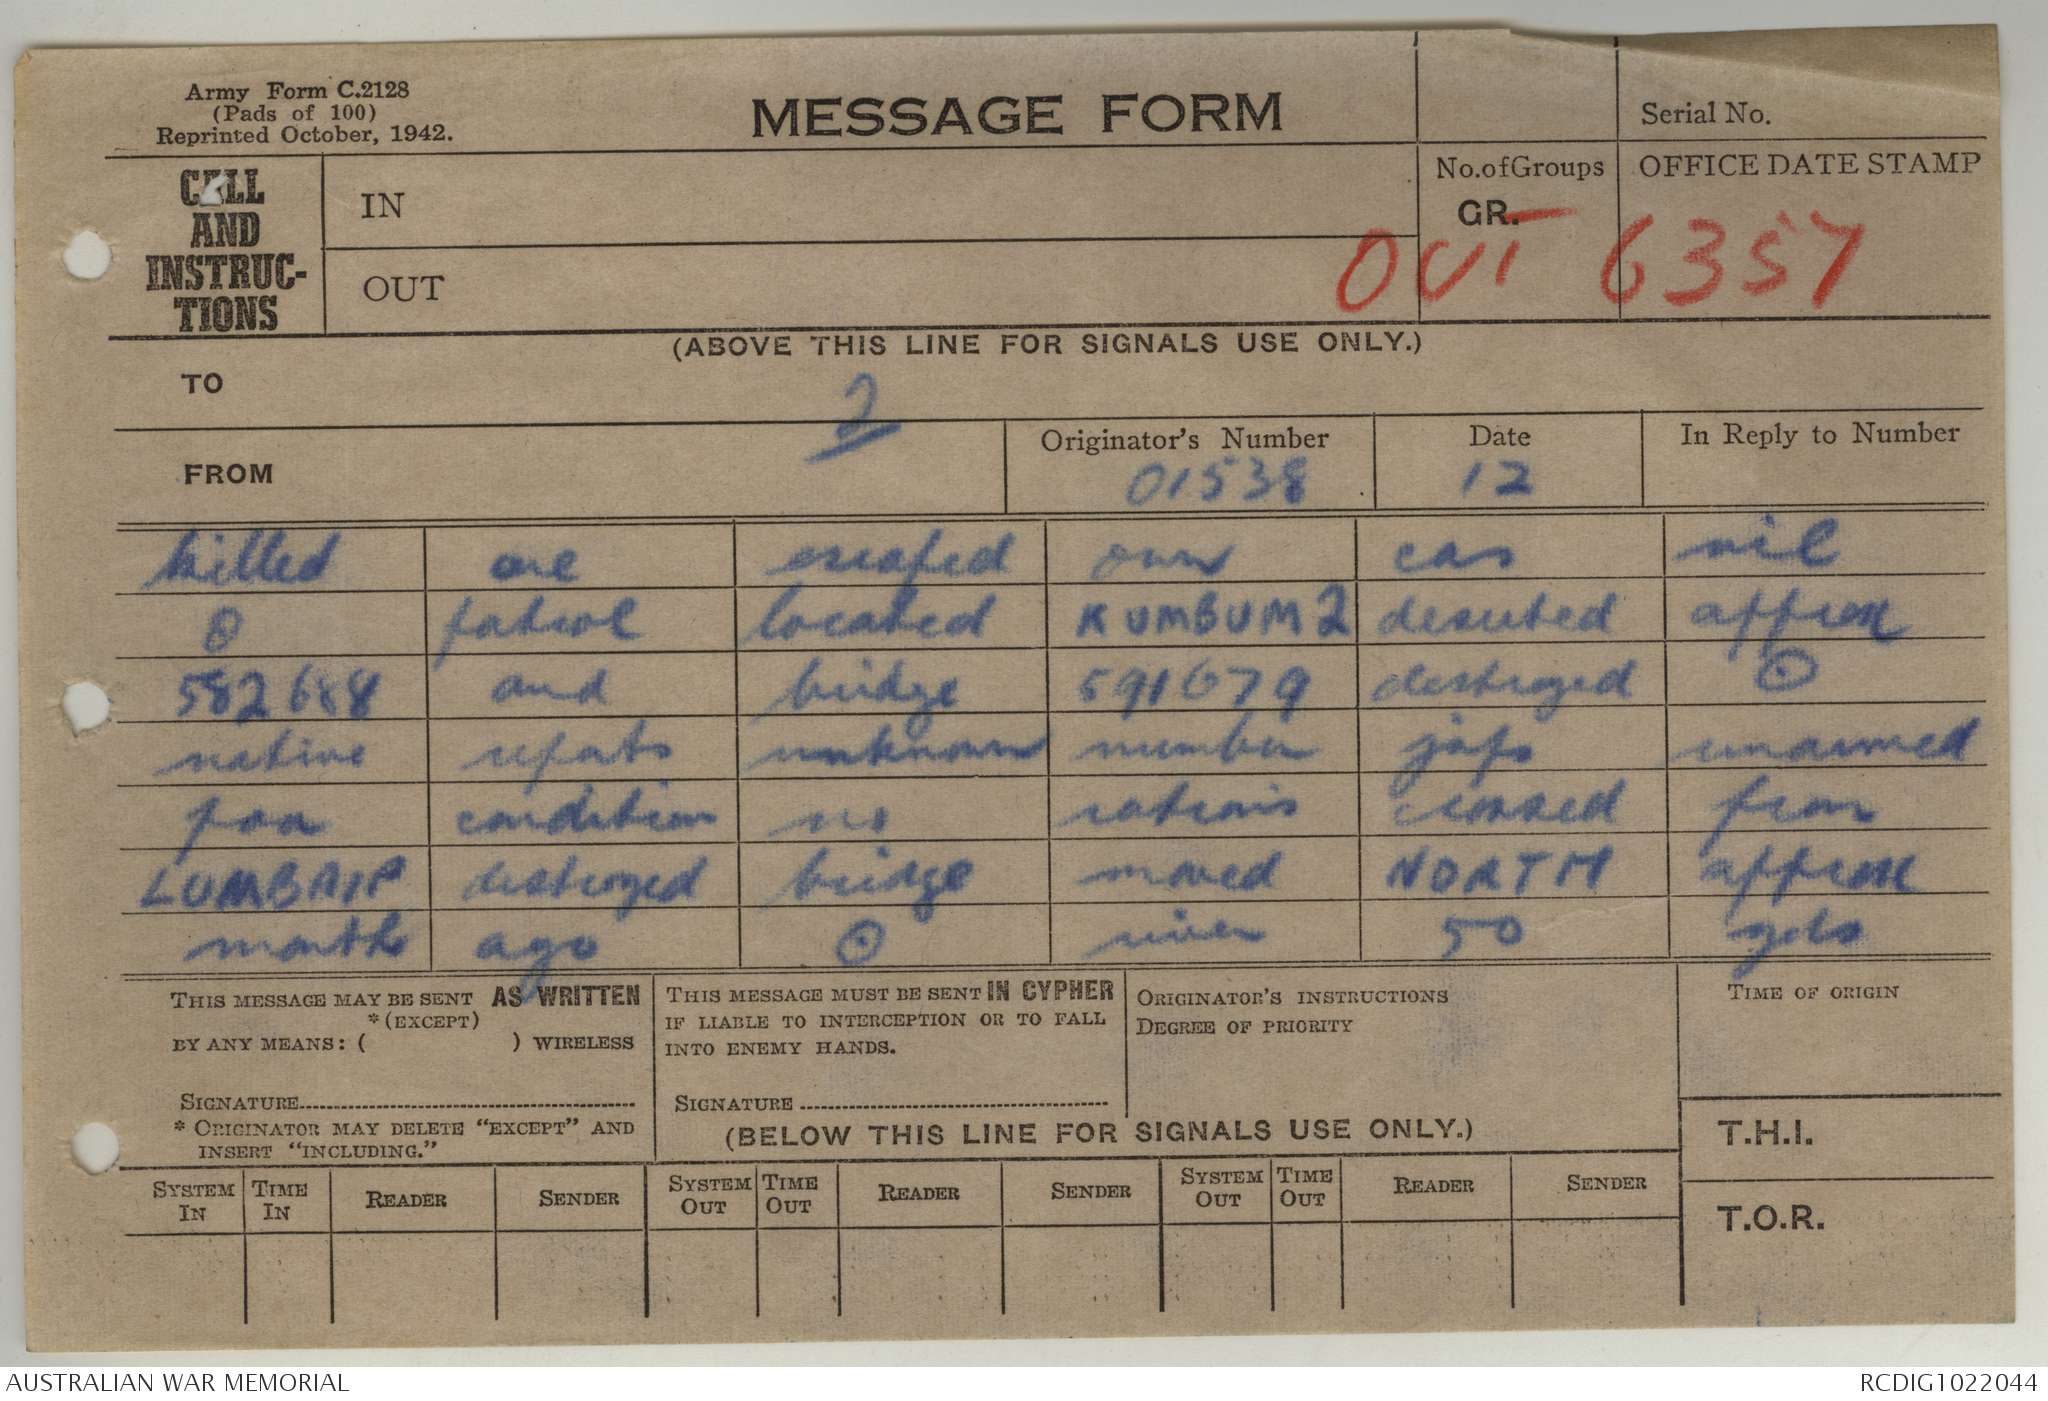 Army Form C.2128
(Pads of 100)
Reprinted October, 1942.
MESSAGE FORM
Serial No.
CALL
AND
INSTRUC-
TIONS
IN
OUT
No.ofGroups
GR.
OFFICE DATE STAMP
OUT 6357
(ABOVE THIS LINE FOR SIGNALS USE ONLY.)
TO
2
FROM
Originator's Number
01538
Date
12
In Reply to Number
killed one escaped own cas nil
⊙ patrol located KUMBUM 2 deserted approx
582688 and bridge 591679 destroyed ⊙
native reports unknown number japs unarmed
poor condition no rations crossed from
LUMBAIP destroyed bridge moved NORTH approx
month ago ⊙ river 50 yds
THIS MESSAGE MAY BE SENT AS WRITTEN
*(EXCEPT)
BY ANY MEANS: ( ) WIRELESS
SIGNATURE
* ORIGINATOR MAY DELETE "EXCEPT" AND
INSERT "INCLUDING."
THIS MESSAGE MUST BE SENT IN CYPHER
IF LIABLE TO INTERCEPTION OR TO FALL
INTO ENEMY HANDS.
SIGNATURE
ORIGINATOR'S INSTRUCTIONS
DEGREE OF PRIORITY
TIME OF ORIGIN
(BELOW THIS LINE FOR SIGNALS USE ONLY.)
T.H.I.
SYSTEM IN TIME IN READER SENDER SYSTEM OUT TIME OUT READER SENDER SYSTEM OUT TIME OUT READER SENDER
T.O.R.
AUSTRALIAN WAR MEMORIAL
RCDIG1022044